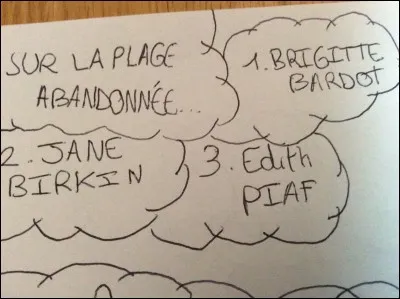 SUR LA PLAGE
ABANDONNÉE...
1. BRIGITTE
BARDOT
2. JANE
BIRKIN
3. Edith
PIAF